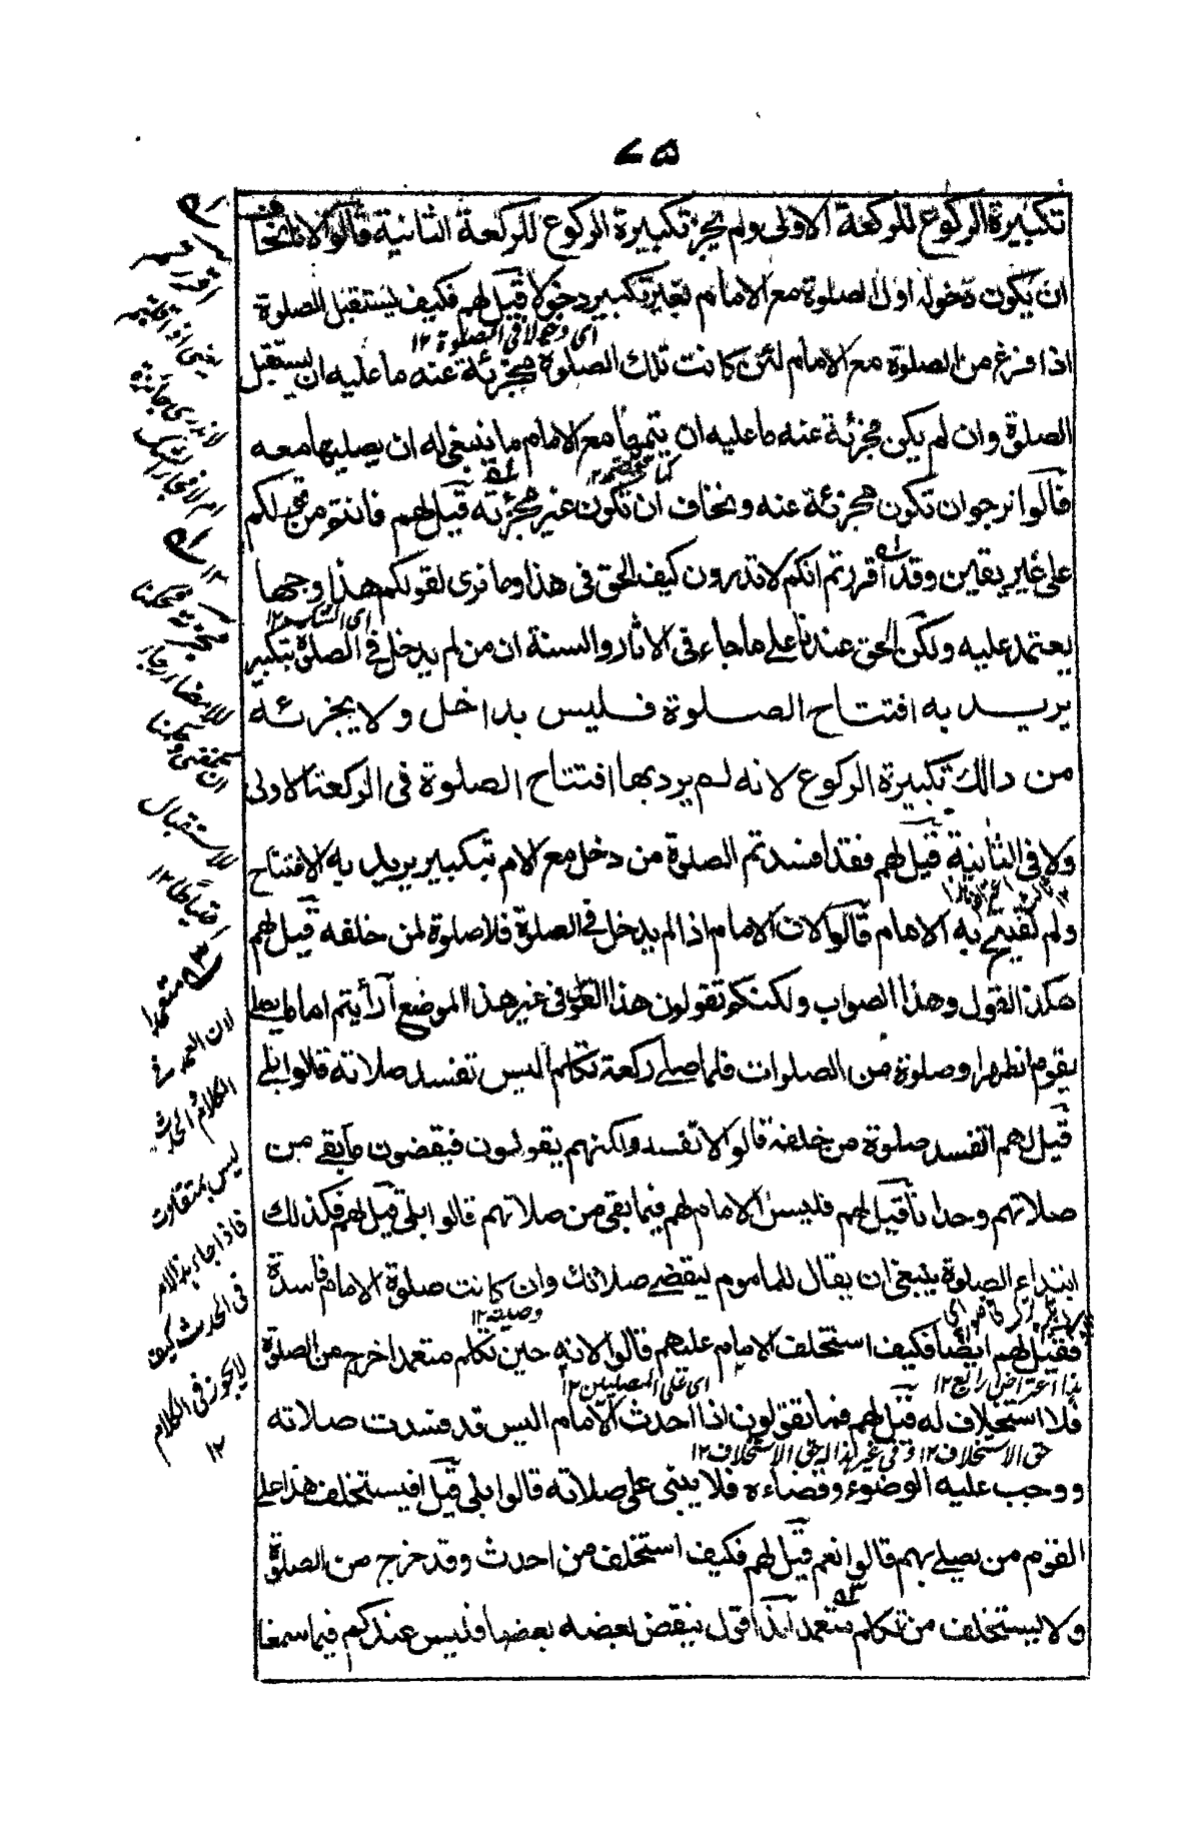 ٧٥
تكبيرة الركوع للركعة الاولى ولم يجز تكبيرة الركوع للركعة الثانية قالوا لانا نخاف
ان يكون دخوله اول الصلوة مع الامام بغير تكبير دخولا قيل لهم فكيف يستقبل الصلوة
اى دخولا فى الصلوة ١٢
اذا فرغ من الصلوة مع الامام لئن كانت تلك الصلوة مجزئة عنه ما عليه ان يستقبل
الصلوة وان لم يكن مجزئة عنه ما عليه ان يتمها مع الامام ما ينبغى له ان يصليها معه
قالوا نرجو ان تكون مجزئة عنه ونخاف ان تكون غير مجزئة قيل لهم فانتم من قولكم
على غير يقين وقد اقررتم انكم لا تدرون كيف الحق فى هذا وما نرى لقولكم هذا وجها
يعتمد عليه ولكن الحق عندنا على ما جاء فى الاثار والسنة ان من لم يدخل فى الصلوة بتكبير
يريد به افتتاح الصلوة فليس بداخل ولا يجزئه
من ذالك تكبيرة الركوع لانه لم يرد بها افتتاح الصلوة فى الركعة الاولى
ولا فى الثانية قيل لهم فقد افسدتم الصلوة من دخل مع الامام بتكبير يريد به الافتتاح
ولم يفتتح به الامام قالوا لان الامام اذا لم يدخل فى الصلوة فلا صلوة لمن خلفه قيل لهم
هكذا القول وهذا الصواب ولكنكم تقولون هذا القول فى غير هذا الموضع أرأيتم اماما يصلى
بقوم الظهر او صلوة من الصلوات فلما صلى ركعة تكلم اليس تفسد صلاته قالوا بلى
قيل لهم اتفسد صلوة من خلفه قالوا لا تفسد ولكنهم يقومون فيقضون ما بقى من
صلاتهم وحدانا قيل لهم فليس الامام لهم فيما بقى من صلاتهم قالوا بلى قيل لهم فكذلك
ابتداء الصلوة ينبغى ان يقال للماموم ليقضى صلاتك وان كانت صلوة الامام فاسدة
فقيل لهم ايضا فكيف استخلف الامام عليهم قالوا لانه حين تكلم متعمدا خرج من الصلوة
هذا اعتراض رابع ١٢
اى على المصليين ١٢
فلا استخلاف له قيل لهم فما تقولون اذا احدث الامام اليس قد فسدت صلاته
حق الاستخلاف ١٢
ووجب عليه الوضوء وقضاءه فلا يبنى على صلاته قالوا بلى قيل افيستخلف هذا على
القوم من يصلى بهم قالوا نعم قيل لهم فكيف استخلف من احدث وقد خرج من الصلوة
ولا يستخلف من تكلم متعمدا هذا قول ينقض بعضه بعضا فليس عندكم فيما سمعنا
متعمدا
لان العمد فى
الكلام والحدث
ليس بمتفاوت
فاذا جاء
فى الحدث كيف
لا يجوز فى الكلام
١٢